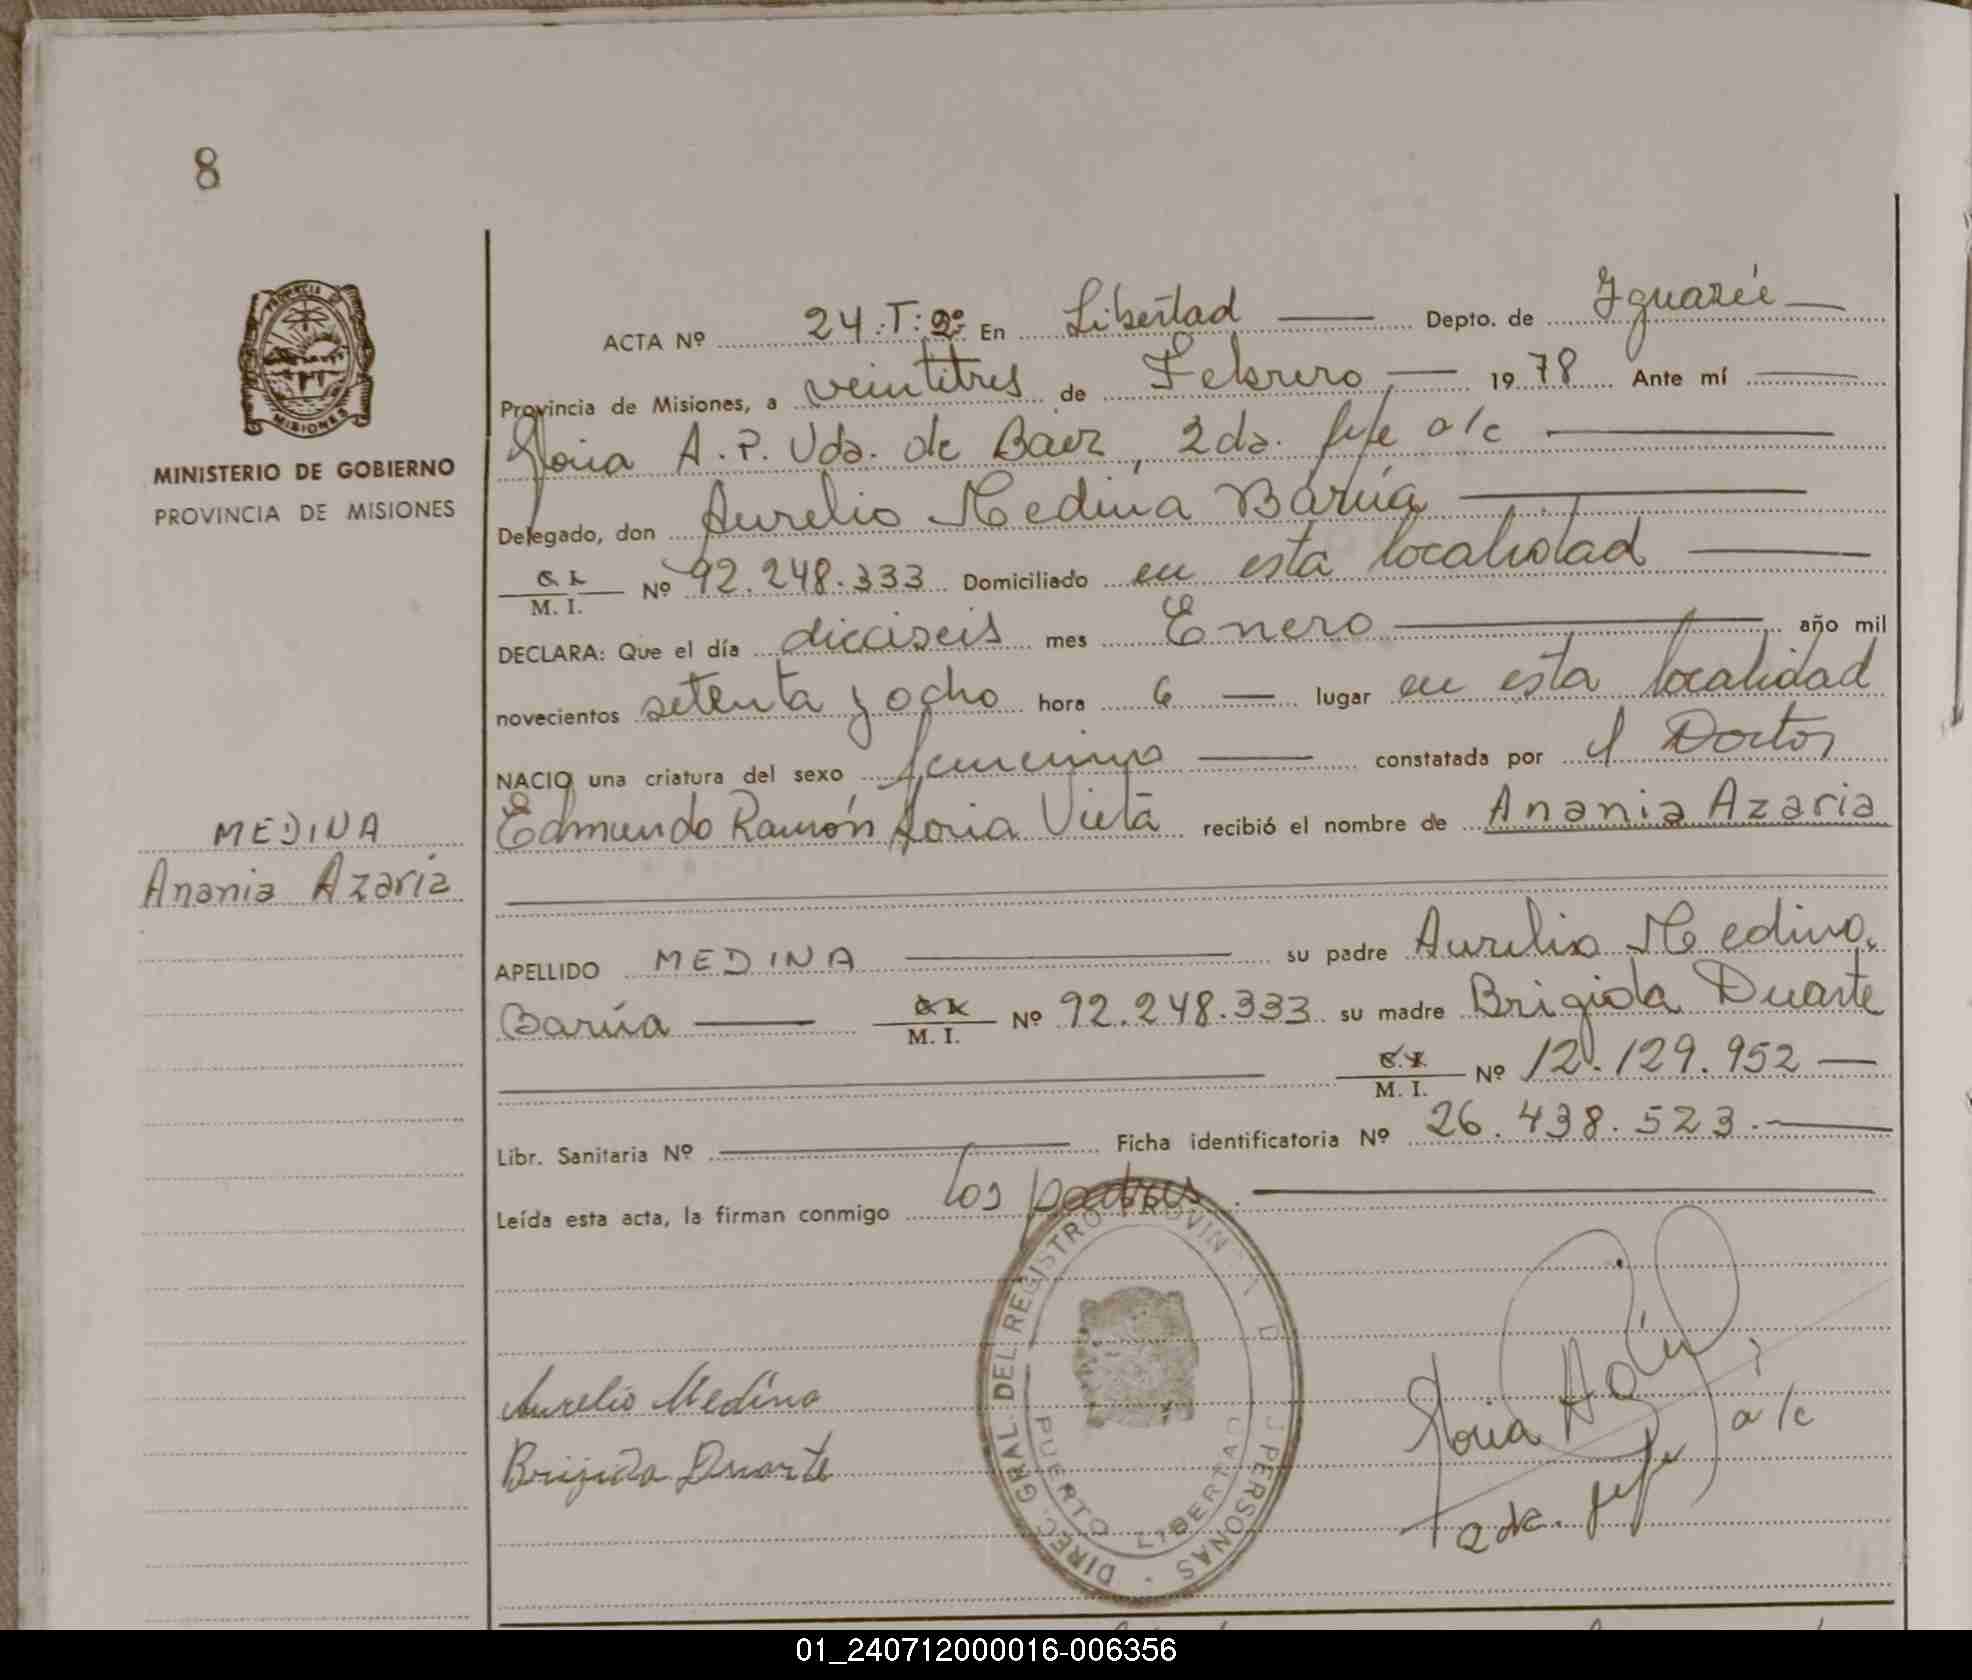 8
PROVINCIA DE
MISIONES
MINISTERIO DE GOBIERNO
PROVINCIA DE MISIONES
MEDINA
Anania Azaria
ACTA Nº 24.T:2º En Libertad Depto. de Iguazú
Provincia de Misiones, a veintitres de Febrero 1978 Ante mí
Gloria A. P. Vda. de Baez, 2da. jefe a/c
Delegado, don Aurelio Medina Barúa
C. I.
M. I. Nº 92.248.333 Domiciliado en esta localidad
DECLARA: Que el día dieciseis mes Enero año mil
novecientos setenta y ocho hora 6 lugar en esta localidad
NACIO una criatura del sexo femenino constatada por el Doctor
Edmundo Ramón Soria Vieta recibió el nombre de Anania Azaria
APELLIDO MEDINA su padre Aurelio Medina
Barúa M. I. Nº 92.248.333 su madre Brigida Duarte
C. I.
M. I. Nº 12.129.952
Libr. Sanitaria Nº Ficha identificatoria Nº 26.438.523.
Leída esta acta, la firman conmigo los padres.
DIREC. GRAL. DEL REGISTRO PROVIN PERSONAS
PUERTO LIBERTAD
Aurelio Medina
Brigida Duarte
Gloria
a/c
2da. jefe
01_240712000016-006356